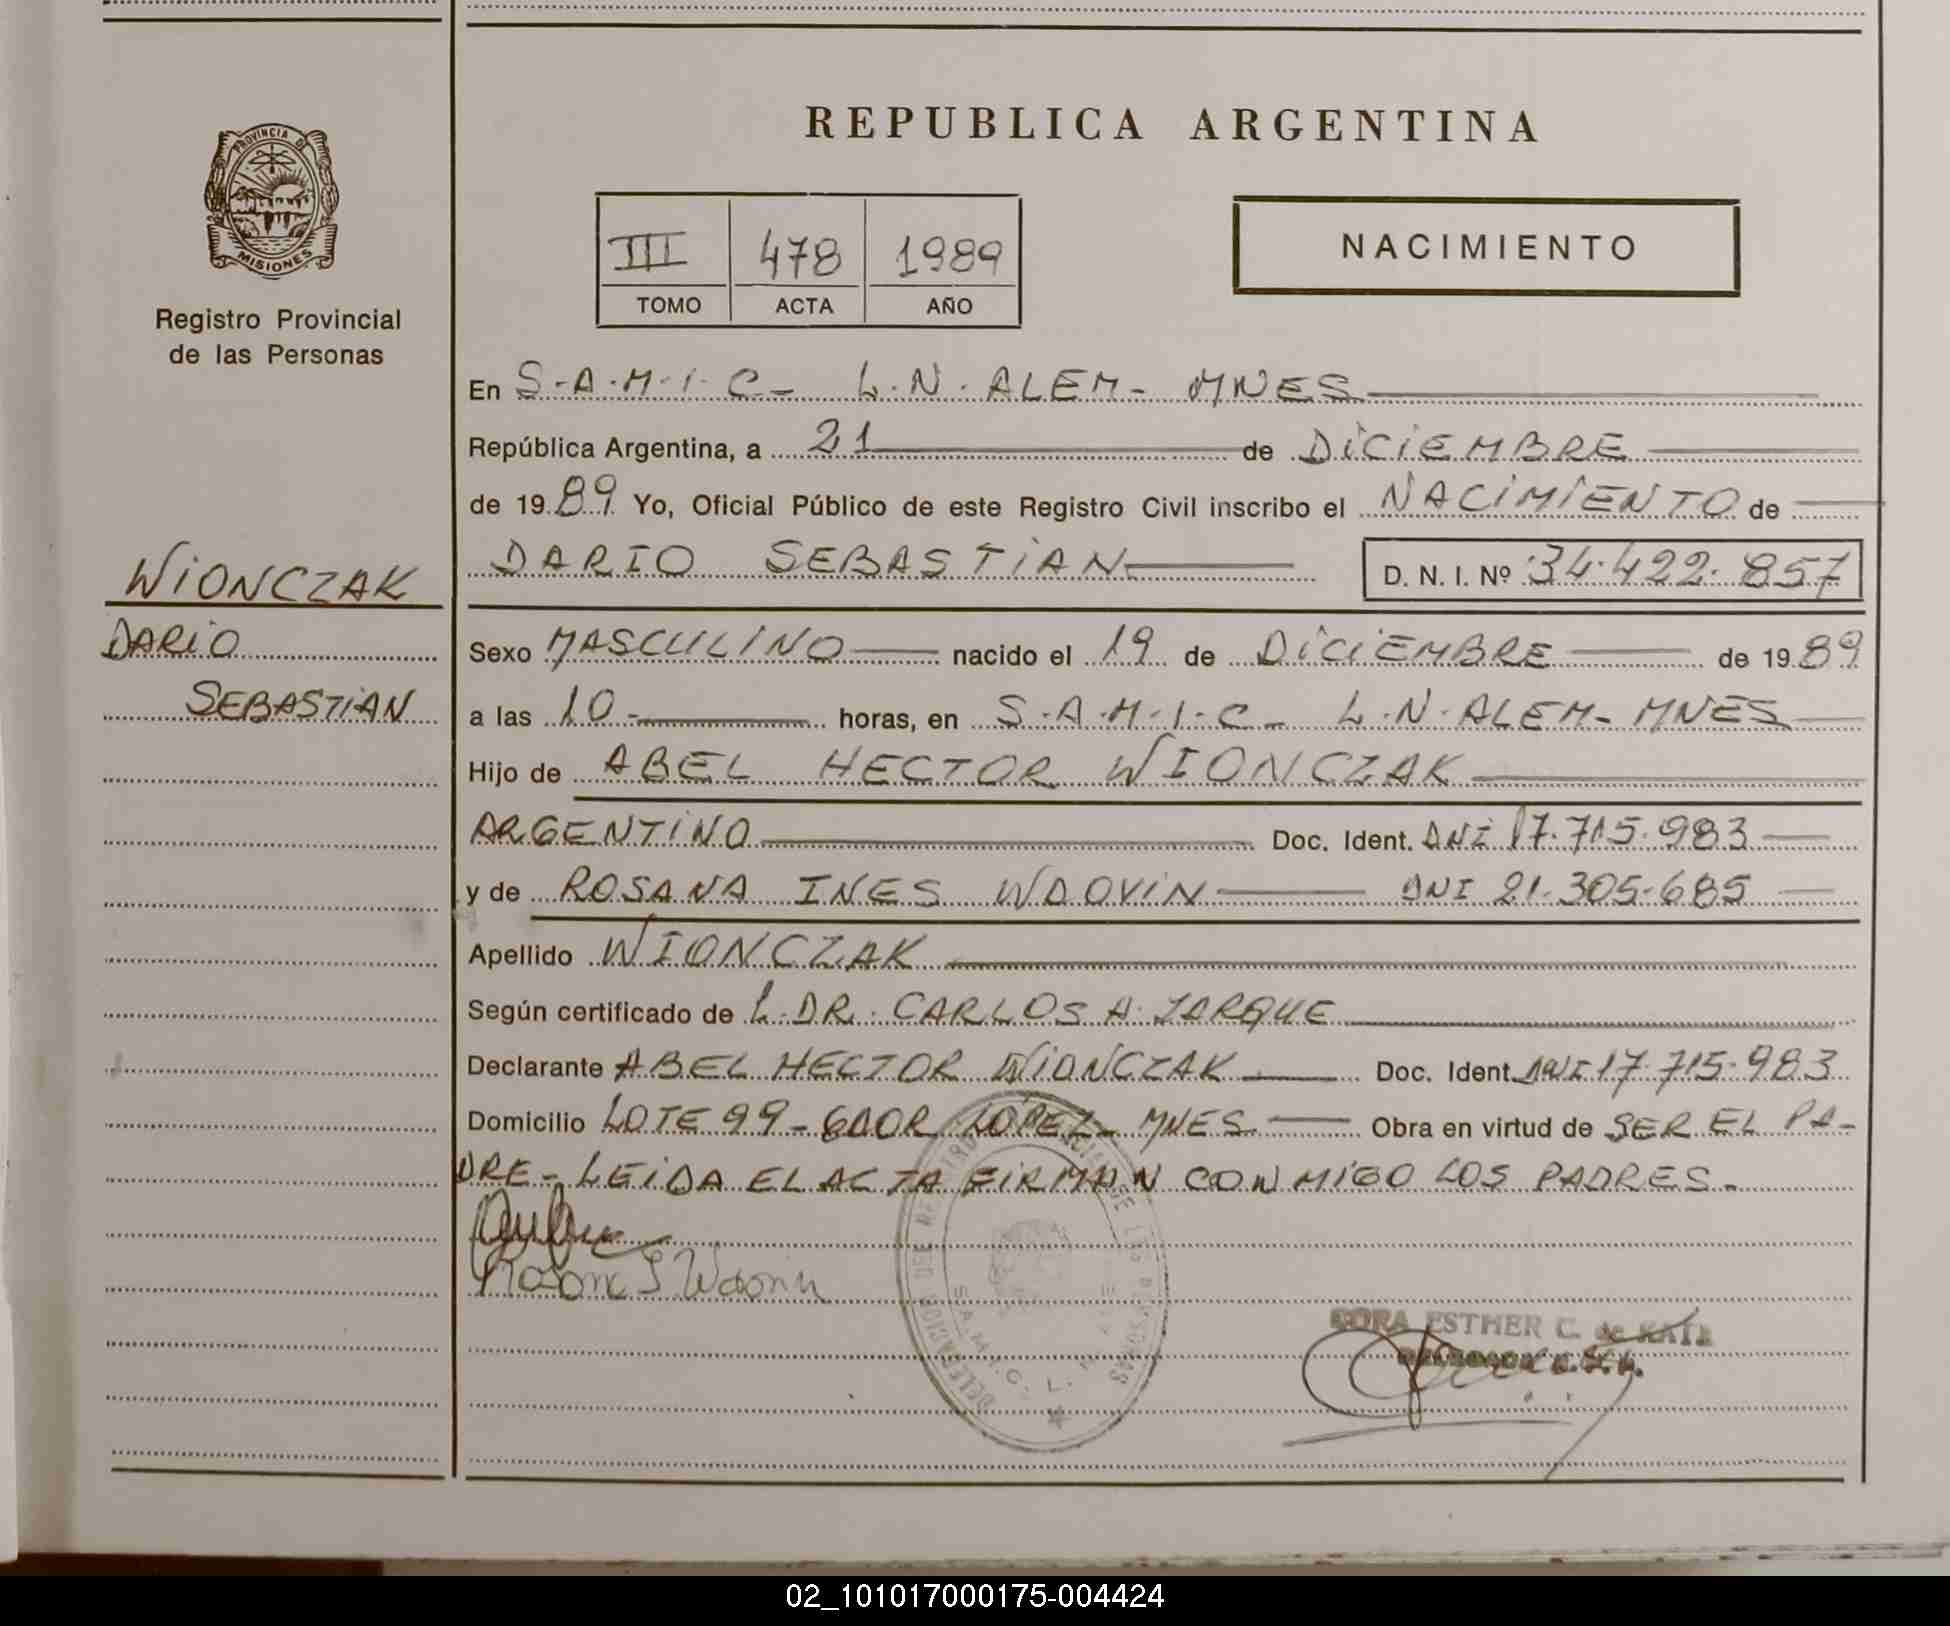 REPUBLICA ARGENTINA
PROVINCIA DE
MISIONES
Registro Provincial
de las Personas
III 478 1989
TOMO ACTA AÑO
NACIMIENTO
En S.A.M.I.C- L.N.ALEM- MNES
República Argentina, a 21 de DICIEMBRE
de 1989 Yo, Oficial Público de este Registro Civil inscribo el NACIMIENTO de
DARIO SEBASTIAN D. N. I. Nº 34.422.857
WIONCZAK
DARIO
SEBASTIAN
Sexo MASCULINO nacido el 19 de DICIEMBRE de 1989
a las 10- horas, en S.A.M.I.C- L.N.ALEM- MNES
Hijo de ABEL HECTOR WIONCZAK
ARGENTINO Doc. Ident. DNI 17.715.983
y de ROSANA INES WDOVIN DNI 21.305.685
Apellido WIONCZAK
Según certificado de L.DR. CARLOS A. JARQUE
Declarante ABEL HECTOR WIONCZAK Doc. Ident. DNI 17.715.983
Domicilio LOTE 99- GDOR LOPEZ- MNES Obra en virtud de SER EL PA-
DRE- LEIDA EL ACTA FIRMAN CONMIGO LOS PADRES.
Rosana I Wdovin
ESTHER C. de
DELEGACION DEL REGISTRO PROVINCIAL DE LAS PERSONAS
S.A.M.I.C. L.
02_101017000175-004424